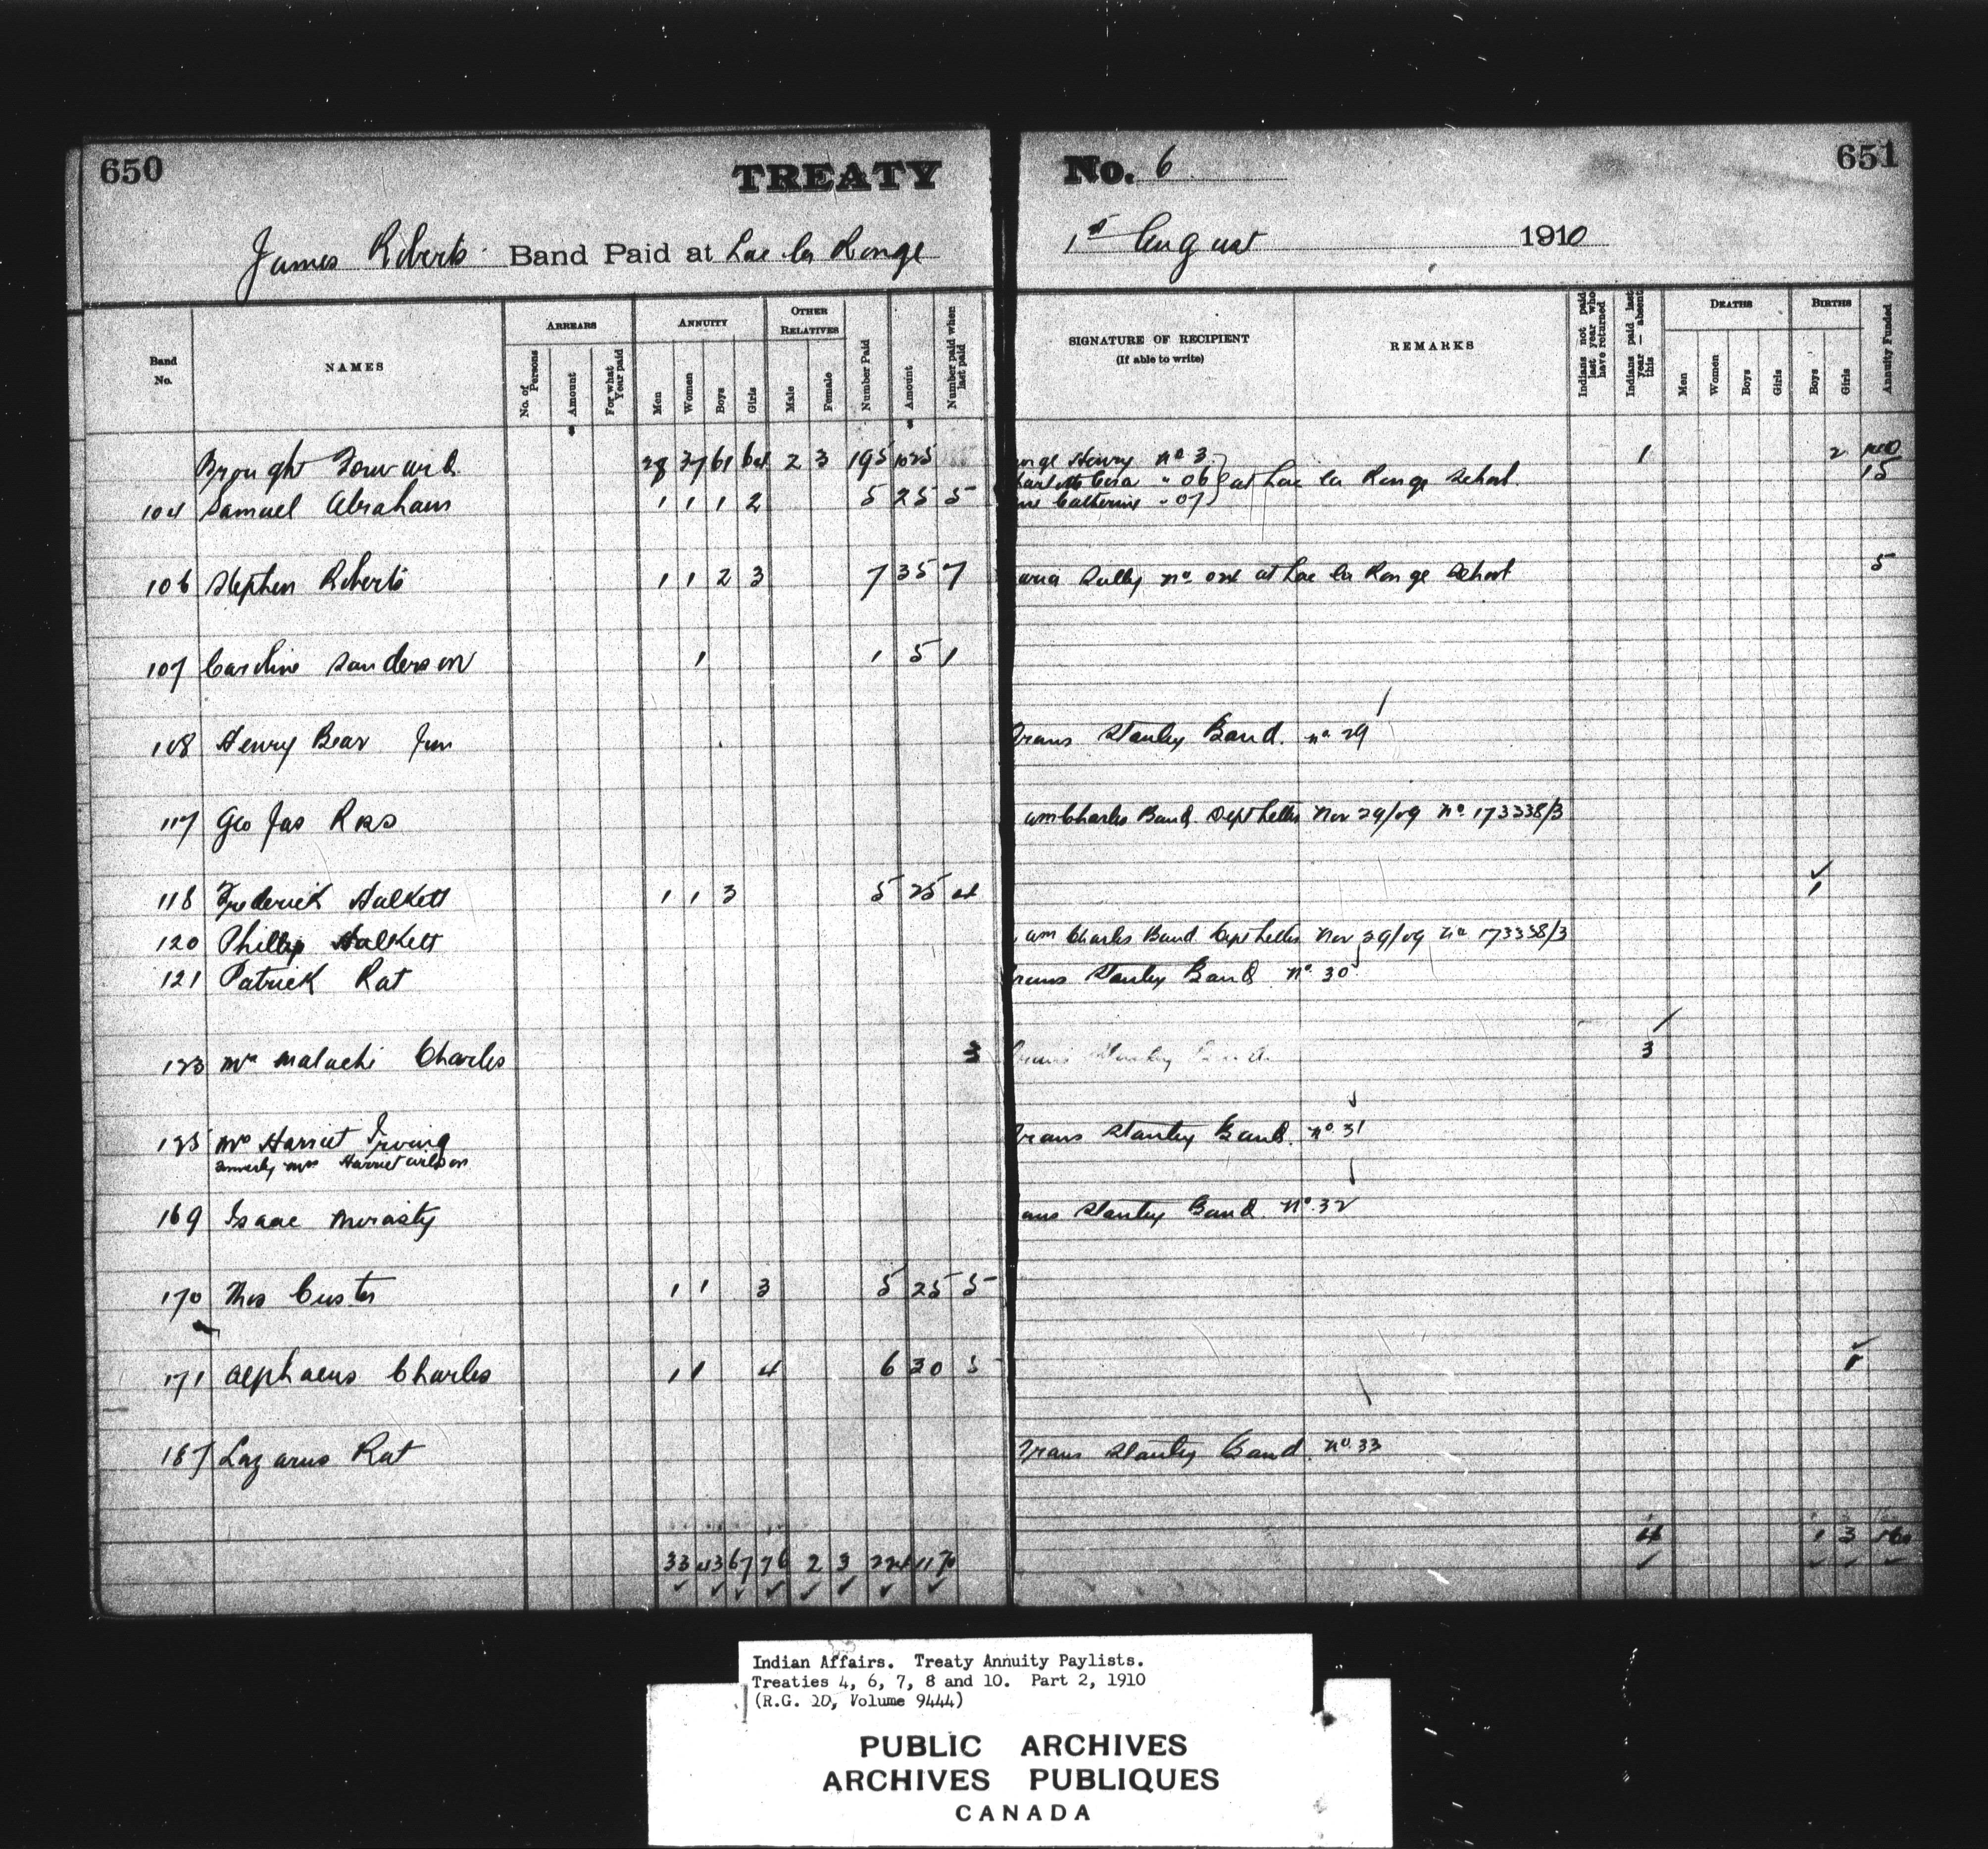 650 TREATY No. 6 651
James Roberts Band Paid at Lac la Ronge 1st August 1910
Band No. NAMES ARREARS No. of Persons Amount For what Year paid ANNUITY Men Women Boys Girls OTHER RELATIVES Male Female Number Paid Amount Number paid when last paid SIGNATURE OF RECIPIENT (If able to write) REMARKS Indians not paid last year who have returned Indians paid last year — absent this DEATHS Men Women Boys Girls BIRTHS Boys Girls Annuity Funded
Brought Forward 28 37 61 64 2 3 195 1025 Henry no 3 1 2
06 at Lac la Ronge School 15
104 Samuel Abraham 1 1 1 2 5 25 5 Catherine " 07
106 Stephen Roberts 1 1 2 3 7 35 7 no at Lac la Ronge School 5
107 Caroline Sanderson 1 1 5 1
108 Henry Bear Jun Trans Stanley Band. no 29
117 Geo Jas Ross am Charles Band Dept Letter Nov 29/09 No 173338/3
118 Frederick Halkett 1 1 3 5 25 4 1
120 Phillip Halkett am Charles Band Dept Letter Nov 29/09 No 173338/3
121 Patrick Rat Trans Stanley Band No 30
123 Mrs Malachi Charles 3 Trans Stanley Band 3
125 Mrs Harriet Irving Trans Stanley Band. No 31
formerly Mrs Harriet Wilson
169 Isaac Mirasty ans Stanley Band No. 32
170 Thos Custer 1 1 3 5 25 5
171 Alphaeus Charles 1 1 4 6 30 5 1
187 Lazarus Rat Trans Stanley Band. No 33
33 43 67 76 2 3 224 1170 4 1 3 160
Indian Affairs. Treaty Annuity Paylists.
Treaties 4, 6, 7, 8 and 10. Part 2, 1910
(R.G. 10, Volume 9444)
PUBLIC ARCHIVES
ARCHIVES PUBLIQUES
CANADA